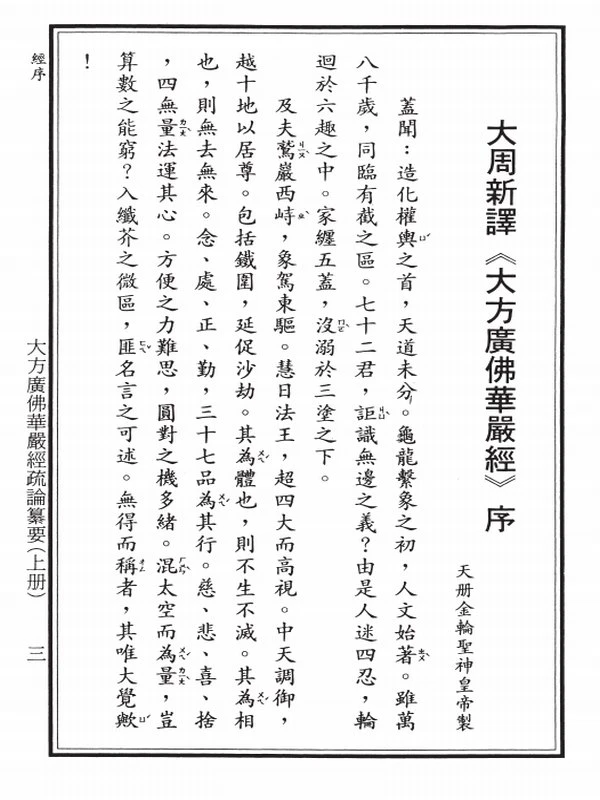 大周新譯《大方廣佛華嚴經》序
天册金輪聖神皇帝製
蓋聞：造化權輿之首，天道未分。龜龍繫象之初，人文始著。雖萬
八千歲，同臨有截之區。七十二君，詎識無邊之義？由是人迷四忍，輪
迴於六趣之中。家纏五蓋，沒溺於三塗之下。
及夫鷲巖西峙，象駕東驅。慧日法王，超四大而高視。中天調御，
越十地以居尊。包括鐵圍，延促沙劫。其為體也，則不生不滅。其為相
也，則無去無來。念、處、正、勤，三十七品為其行。慈、悲、喜、捨
，四無量法運其心。方便之力難思，圓對之機多緒。混太空而為量，豈
算數之能窮？入纖芥之微區，匪名言之可述。無得而稱者，其唯大覺歟
！
經序
大方廣佛華嚴經疏論纂要(上册)
三